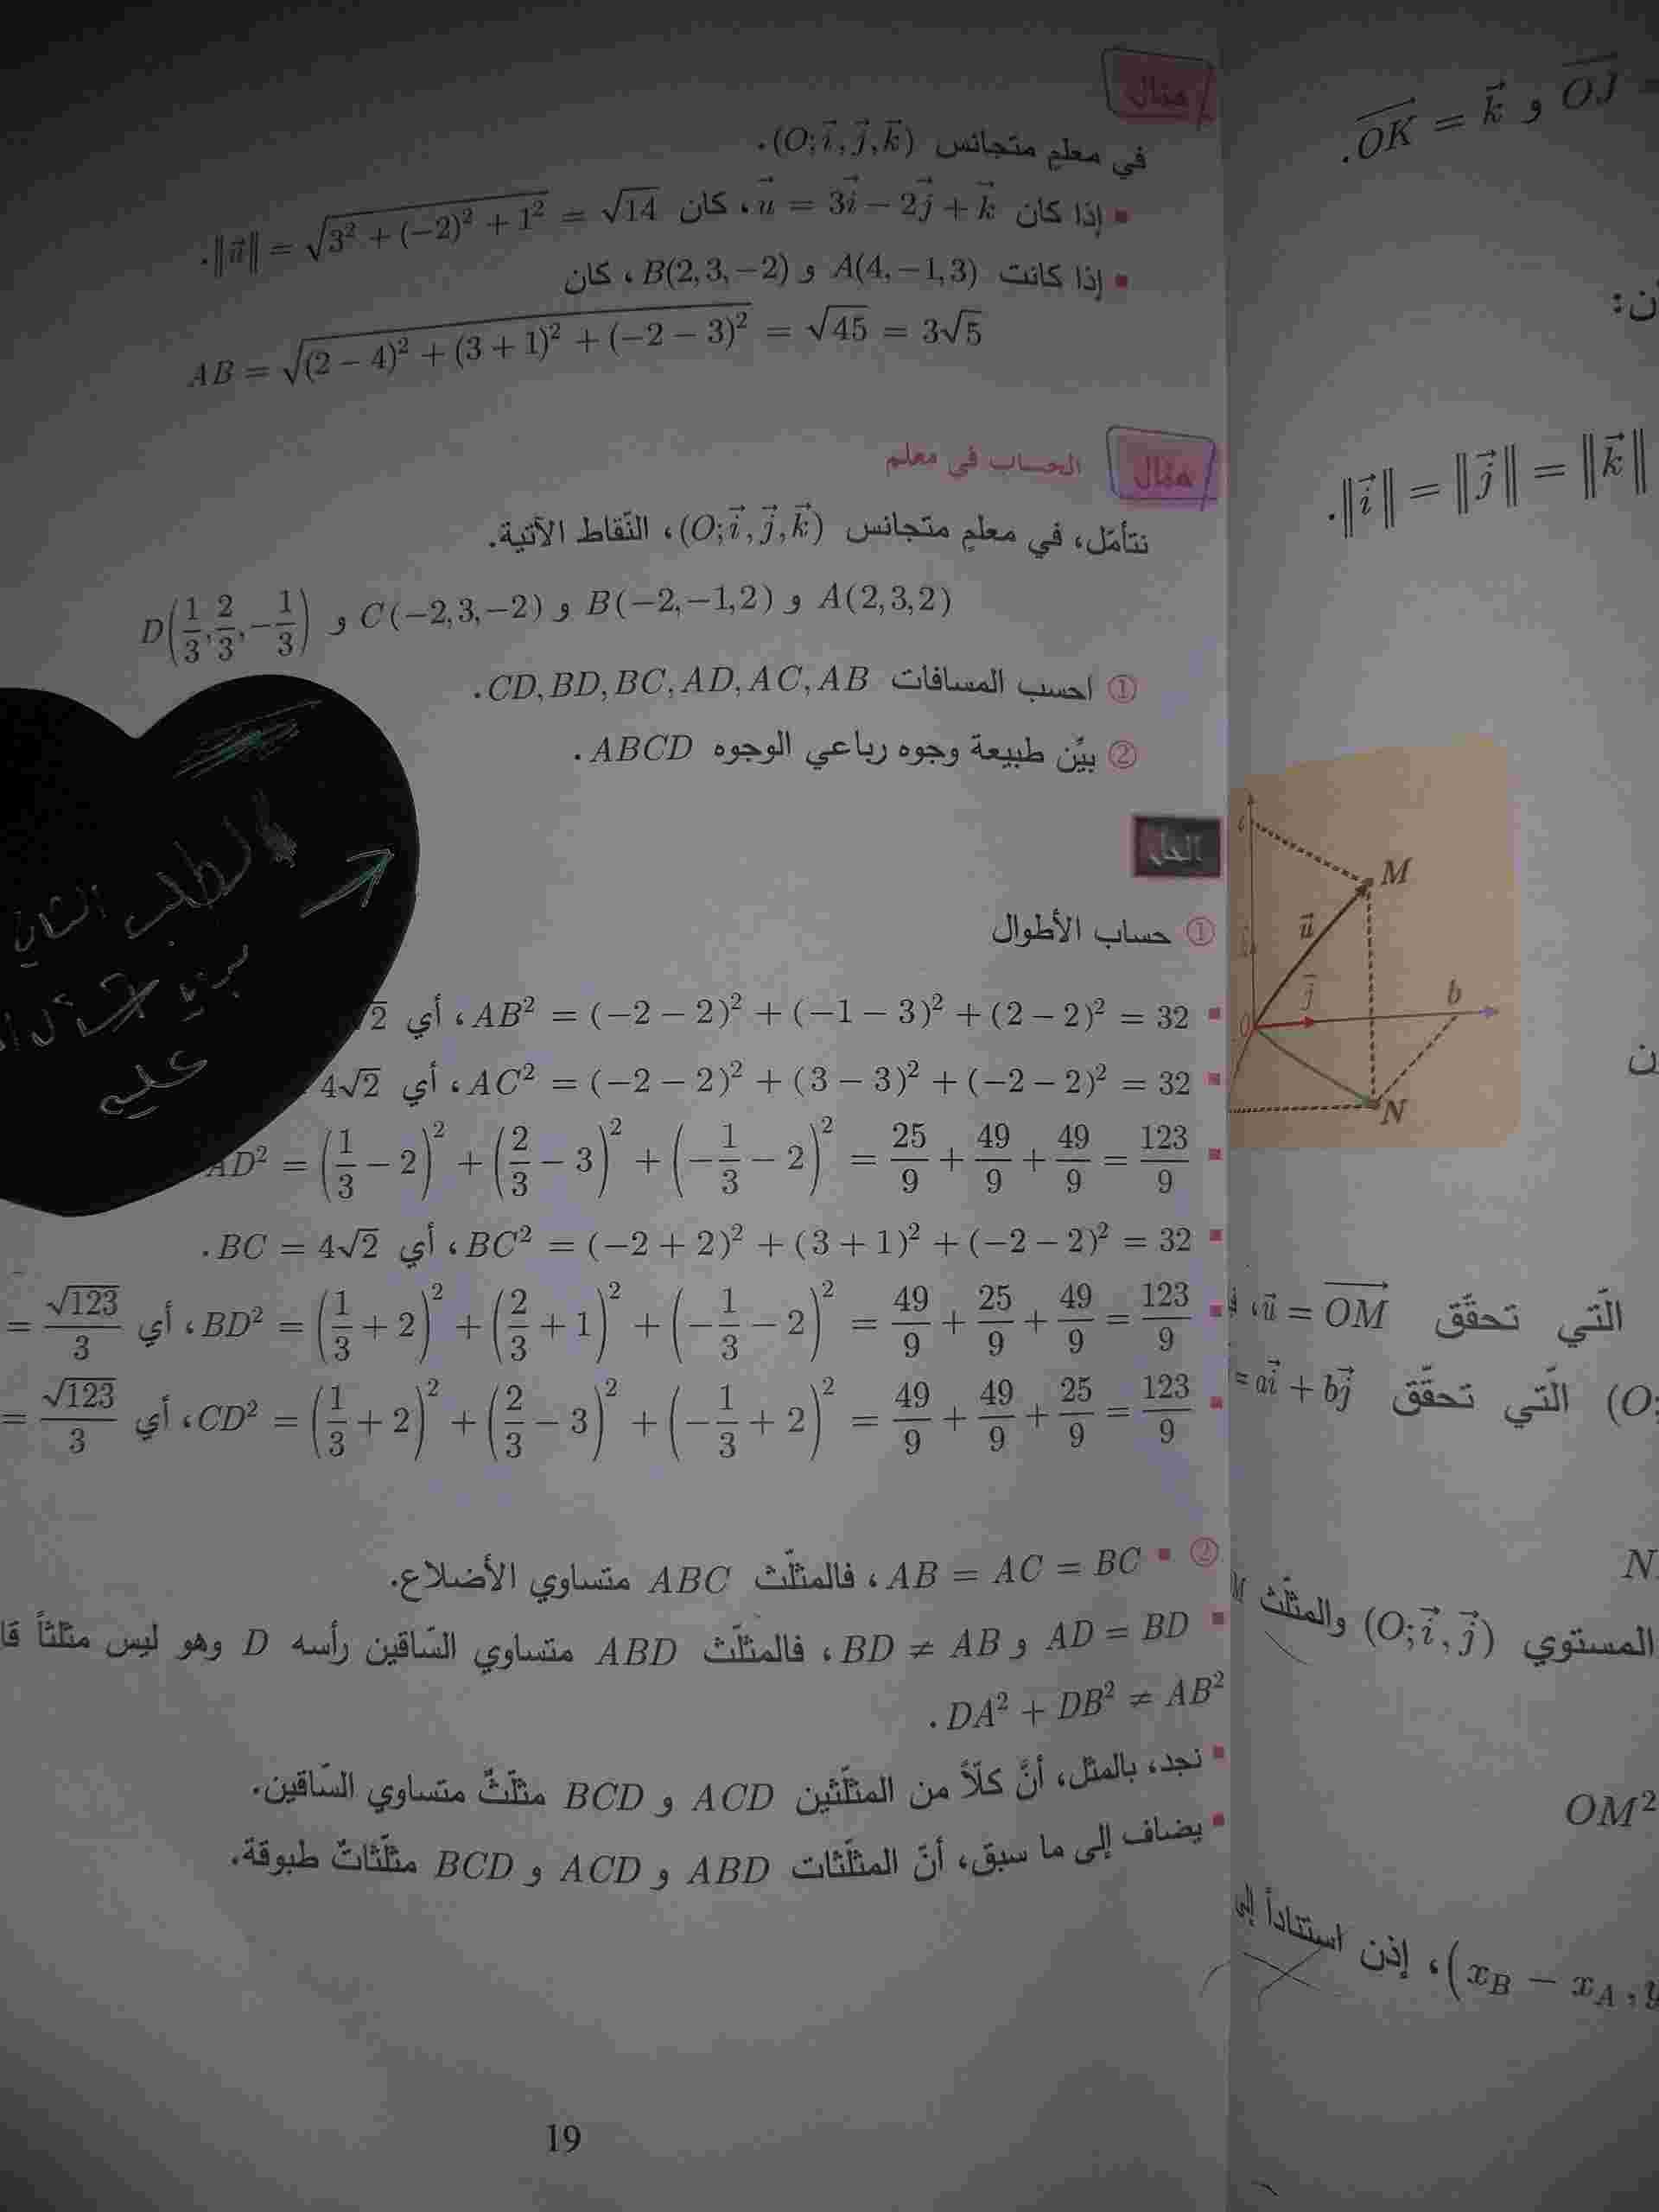 مثال
في معلمٍ متجانس (O; i, j, k).
▪ إذا كان u = 3i − 2j + k، كان ‖u‖ = √(3² + (−2)² + 1²) = √14.
▪ إذا كانت A(4, −1, 3) و B(2, 3, −2)، كان
AB = √((2 − 4)² + (3 + 1)² + (−2 − 3)²) = √45 = 3√5
مثال الحساب في معلم
نتأمّل، في معلمٍ متجانس (O; i, j, k)، النّقاط الآتية.
A(2, 3, 2) و B(−2, −1, 2) و C(−2, 3, −2) و D(1/3, 2/3, −1/3)
① احسب المسافات CD, BD, BC, AD, AC, AB.
② بيِّن طبيعة وجوه رباعي الوجوه ABCD.
الطلب الثاني
عليه
الحل
① حساب الأطوال
▪ AB² = (−2 − 2)² + (−1 − 3)² + (2 − 2)² = 32، أي √2
▪ AC² = (−2 − 2)² + (3 − 3)² + (−2 − 2)² = 32، أي 4√2
▪ AD² = (1/3 − 2)² + (2/3 − 3)² + (−1/3 − 2)² = 25/9 + 49/9 + 49/9 = 123/9
▪ BC² = (−2 + 2)² + (3 + 1)² + (−2 − 2)² = 32، أي BC = 4√2.
▪ BD² = (1/3 + 2)² + (2/3 + 1)² + (−1/3 − 2)² = 49/9 + 25/9 + 49/9 = 123/9، أي = √123/3
▪ CD² = (1/3 + 2)² + (2/3 − 3)² + (−1/3 + 2)² = 49/9 + 49/9 + 25/9 = 123/9، أي = √123/3
② ▪ AB = AC = BC، فالمثلّث ABC متساوي الأضلاع.
▪ AD = BD و BD ≠ AB، فالمثلّث ABD متساوي السّاقين رأسه D وهو ليس مثلثاً قا
DA² + DB² ≠ AB².
▪ نجد، بالمثل، أنَّ كلّاً من المثلّثين ACD و BCD مثلّثٌ متساوي السّاقين.
▪ يضاف إلى ما سبق، أنّ المثلّثات ABD و ACD و BCD مثلّثاتٌ طبوقة.
19
OJ و OK = k.
ن:
‖i‖ = ‖j‖ = ‖k‖.
M
u
j
b
O
N
ن
الّتي تحقّق u = OM،
(O; الّتي تحقّق = ai + bj
N
المستوي (O; i, j) والمثلّث M
OM²
x_B − x_A, y)، إذن استناداً إلى